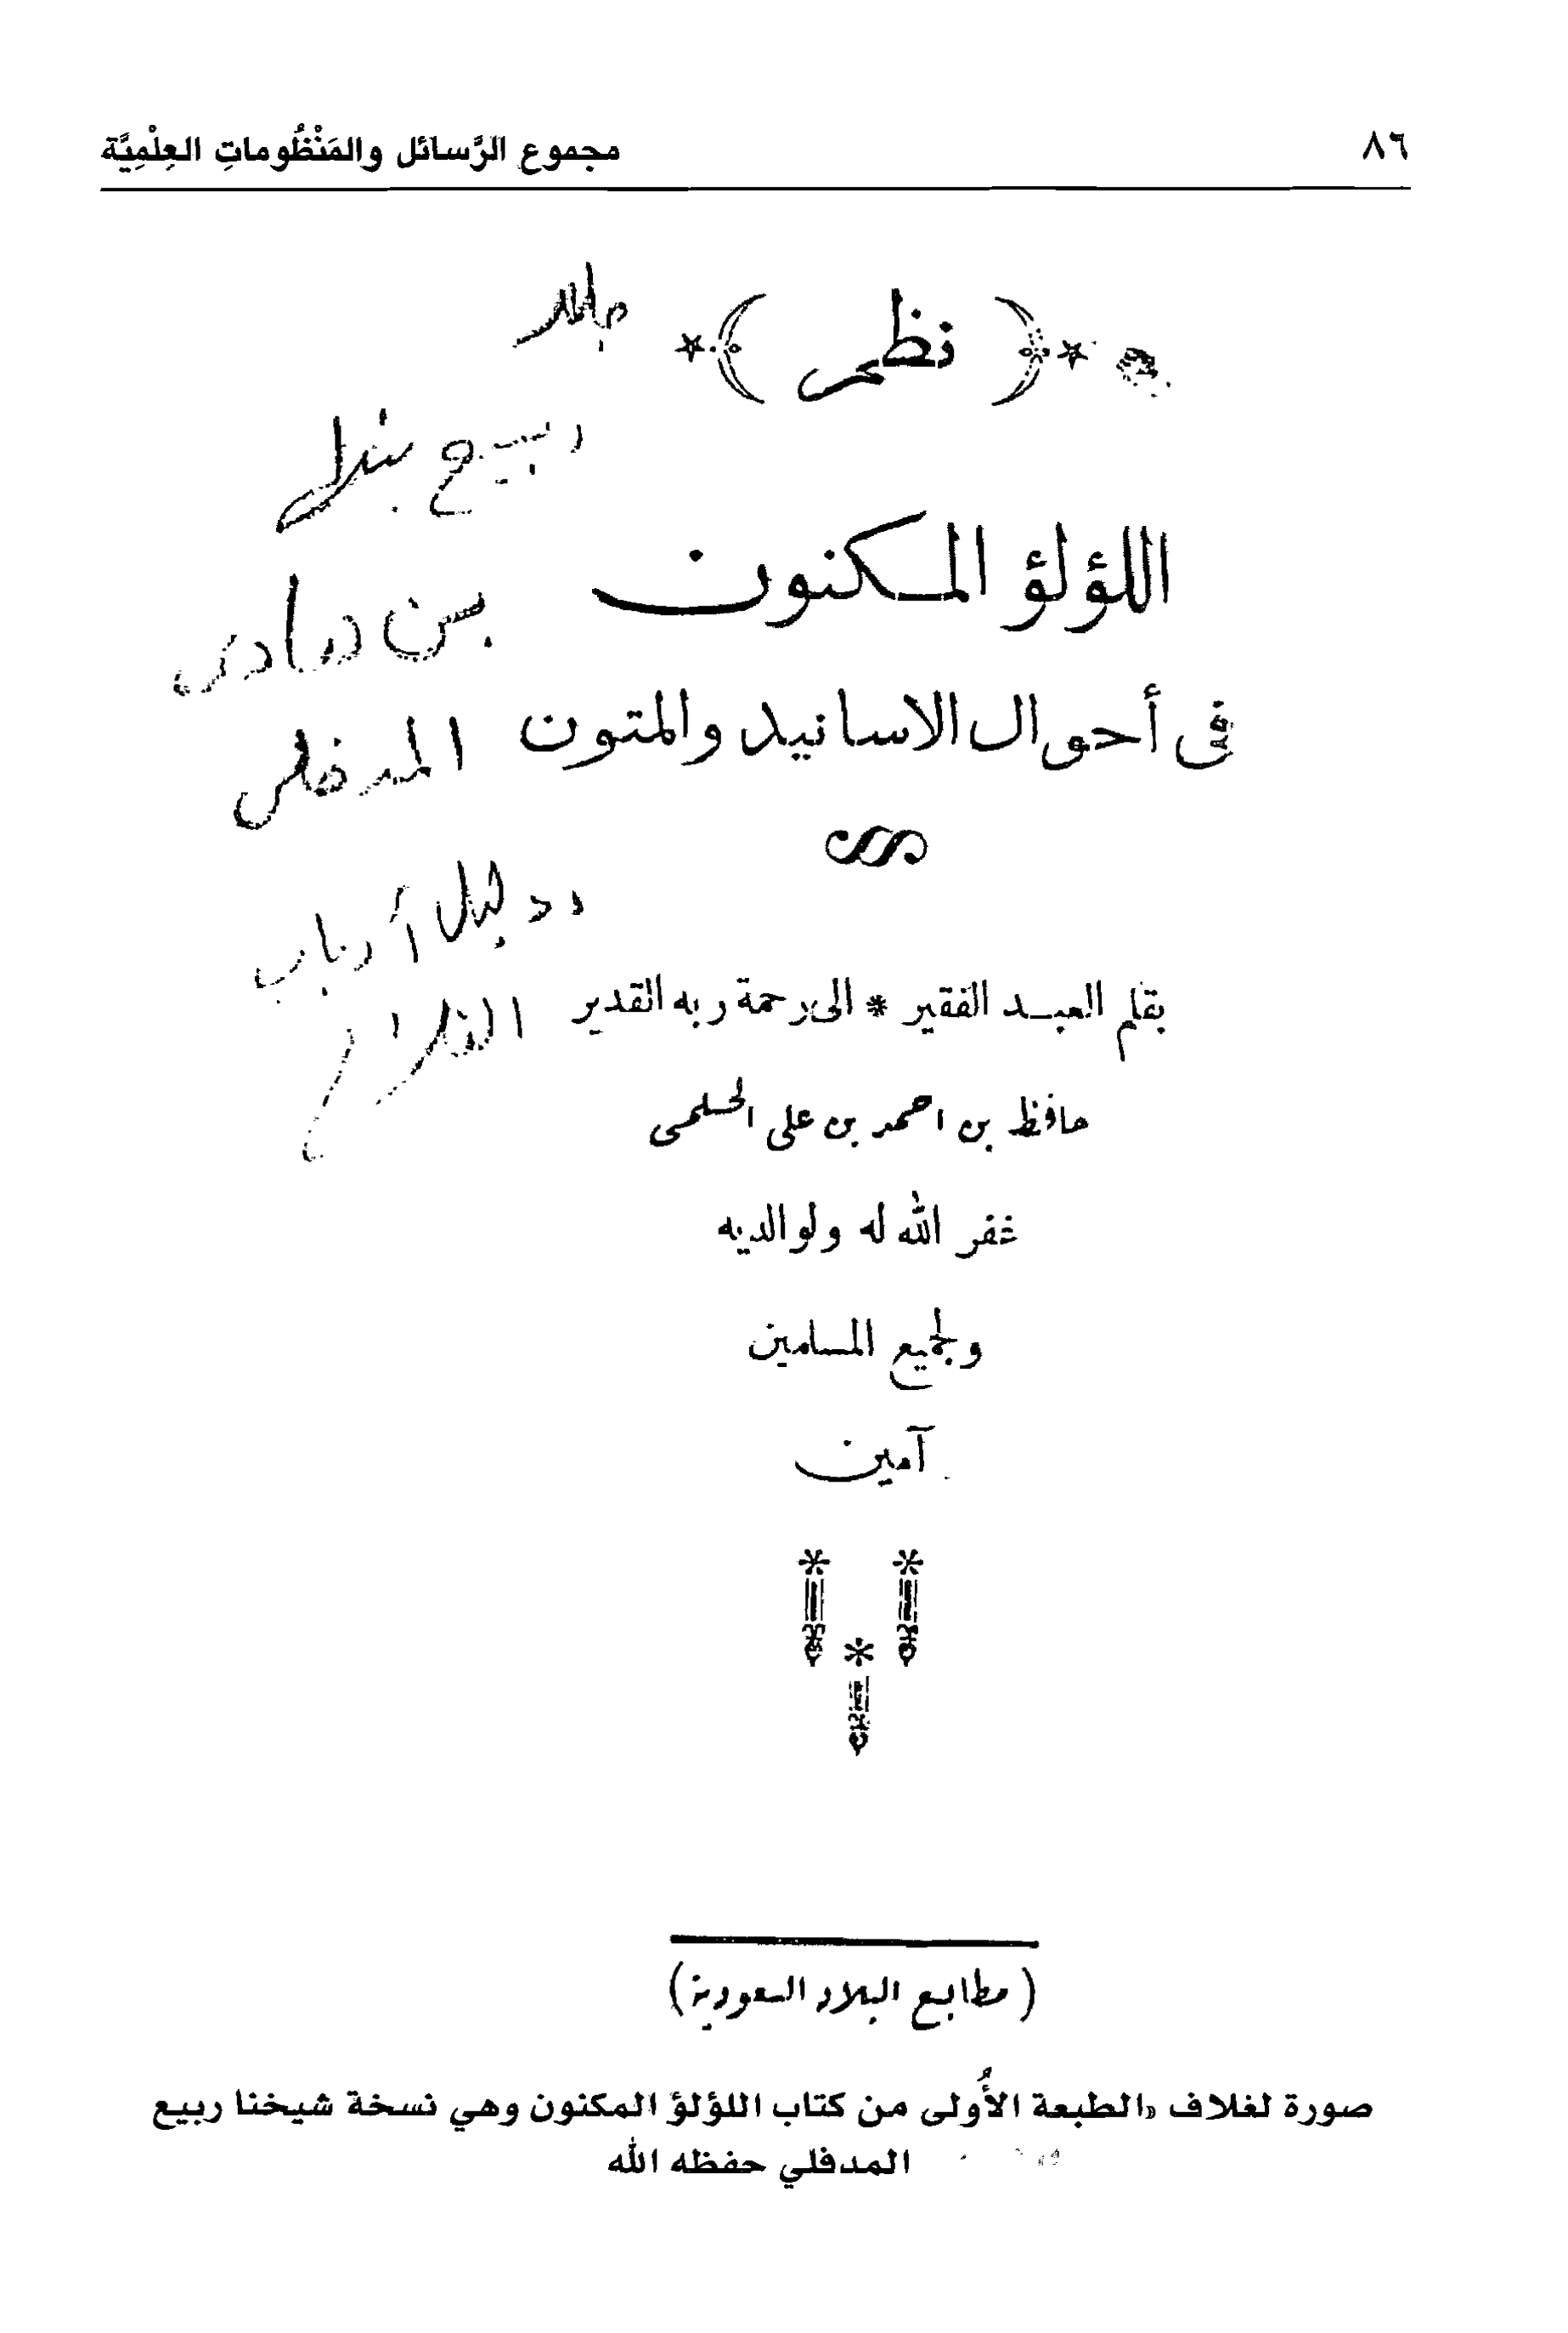 ٨٦
مجموع الرَّسائل والمَنْظُوماتِ العِلْمِيَّة
( نظم )
ربيع بن
اللؤلؤ المكنون
بن هادي
فى أحوال الاسانيد والمتون
المدخلي
دليل أرباب
الفلاح
بقلم العبد الفقير * الى رحمة ربه القدير
حافظ بن احمد بن على الحكمى
غفر الله له ولوالديه
ولجميع المسلمين
آمين
( مطابع البلاد السعودية )
صورة لغلاف «الطبعة الأُولى من كتاب اللؤلؤ المكنون وهي نسخة شيخنا ربيع
المدفلي حفظه الله